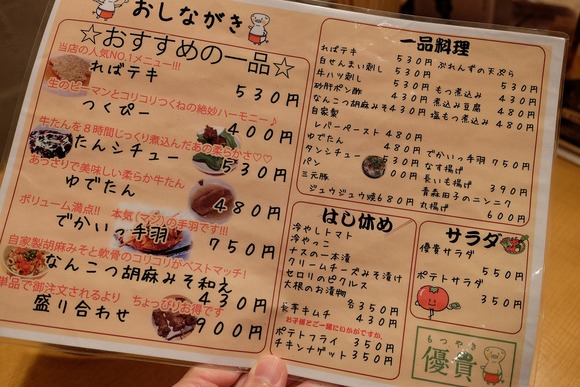 おしながき
☆おすすめの一品☆
当店の人気NO.1メニュー!!!
ればテキ
530円
生のピーマンとコリコリつくねの絶妙ハーモニー♪
つくぴー
400円
牛たんを8時間じっくり煮込んだあの柔らかさ♡♡
たんシチュー
530円
あっさりで美味しい柔らか牛たん
ゆでたん
480円
ボリューム満点!! 本気(マジ)の手羽です!!!
でかいっ手羽
750円
自家製胡麻みそと軟骨のコリコリがベストマッチ!
なんこつ胡麻みそ和え
430円
単品で御注文されるより ちょっぴりお得です
盛り合わせ
900円
一品料理
ればテキ 530円
白せんまい刺し 530円
牛ハツ刺し 530円
砂肝ポン酢 430円
なんこつ胡麻みそ430円
自家製
レバーペースト 480円
ゆでたん 480円
タンシチュー 530円
パン
三元豚 400円
ジュウジュウ焼680円
ぶれんずの天ぷら
530円
もつ煮込み 430円
煮込み豆腐 480円
塩もつ煮込み 480円
でかいっ手羽 750円
なす揚げ
長いも揚げ 390円
青森田子のニンニク
丸揚げ 600円
はし休め
冷やしトマト
冷やっこ
ナスの一本漬
クリームチーズみそ漬け
セロリのピクルス
大根のお漬物
各350円
長芋キムチ 430円
お子様とご一緒にいかがですか。
ポテトフライ 350円
チキンナゲット 350円
サラダ
優貴サラダ
550円
ポテトサラダ
350円
もつやき
優貴